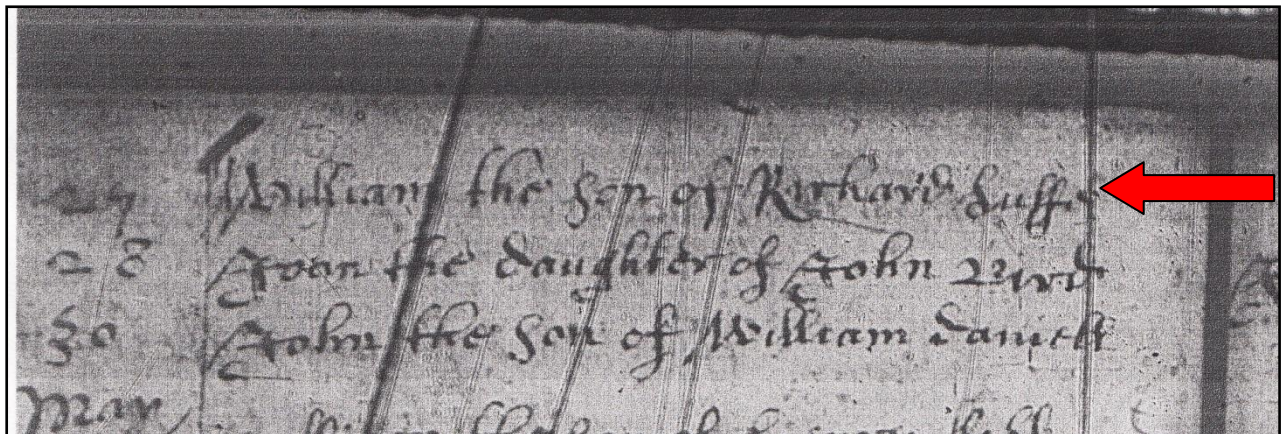 27 William the son of Richard Luffe
28 Joan the daughter of John Bird
30 John the son of William Daniell
May